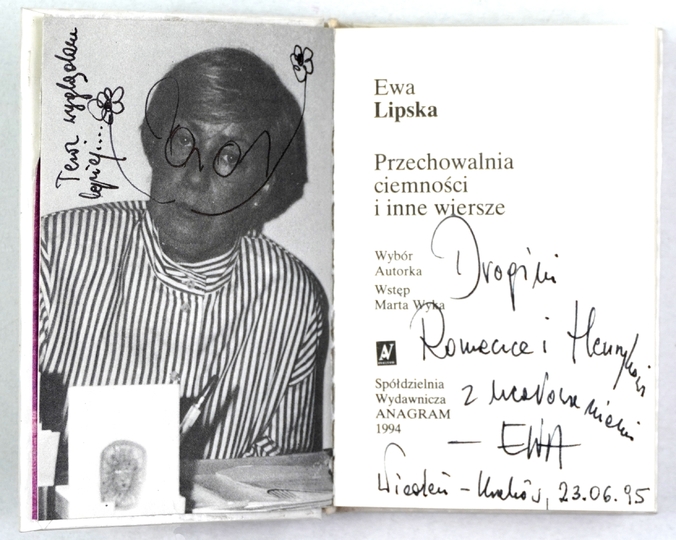 Teraz wyglądam
lepiej....
Ewa
Lipska
Przechowalnia
ciemności
i inne wiersze
Wybór
Autorka
Wstęp
Marta Wyka
Drogim
Romece i Henrykowi
AV
ANAGRAM
Spółdzielnia
Wydawnicza
ANAGRAM
1994
z ucałowaniami
— EWA
Wiedeń - Kraków, 23.06.95